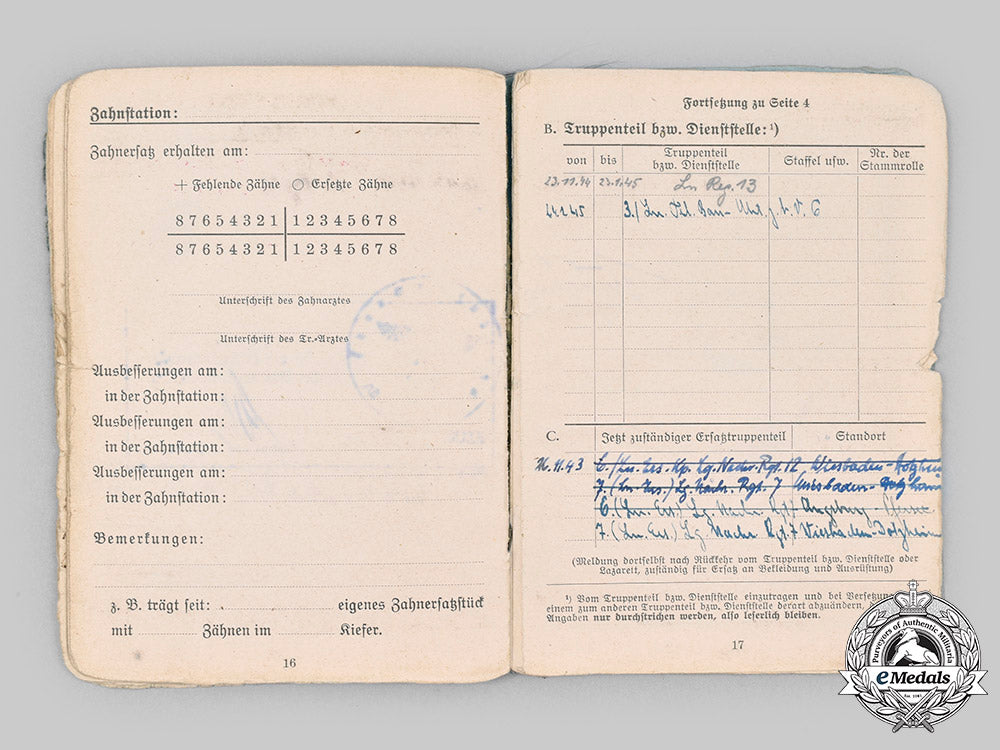 Zahnstation:
Zahnersatz erhalten am:
+ Fehlende Zähne ○ Ersetzte Zähne
8 7 6 5 4 3 2 1 | 1 2 3 4 5 6 7 8
8 7 6 5 4 3 2 1 | 1 2 3 4 5 6 7 8
Unterschrift des Zahnarztes
Unterschrift des Tr.-Arztes
Ausbesserungen am:
in der Zahnstation:
Ausbesserungen am:
in der Zahnstation:
Ausbesserungen am:
in der Zahnstation:
Bemerkungen:
z. B. trägt seit: eigenes Zahnersatzstück
mit Zähnen im Kiefer.
16
Fortsetzung zu Seite 4
B. Truppenteil bzw. Dienststelle: ¹)
von bis Truppenteil bzw. Dienststelle Staffel usw. Nr. der Stammrolle
23.11.44 23.1.45 Ln Reg. 13
3./Ln.
C. Jetzt zuständiger Ersatztruppenteil Standort
11.43 Ln. Ers. Kp. Lg. Nachr. Rgt. 12 Wiesbaden-Dotzheim
7. (Ln. Ers.) Lg. Nachr. Rgt. 7 Wiesbaden-Dotzheim
6. (Ln. Ers.) Lg. Nachr. Rgt. Augsburg
7. (Ln. Ers.) Lg. Nachr. Rgt. 7 Wiesbaden-Dotzheim
(Meldung dortselbst nach Rückkehr vom Truppenteil bzw. Dienststelle oder
Lazarett, zuständig für Ersatz an Bekleidung und Ausrüstung)
¹) Vom Truppenteil bzw. Dienststelle einzutragen und bei Versetzung
einem zum anderen Truppenteil bzw. Dienststelle derart abzuändern,
Angaben nur durchstrichen werden, also leserlich bleiben.
17
Purveyors of Authentic Militaria
eMedals